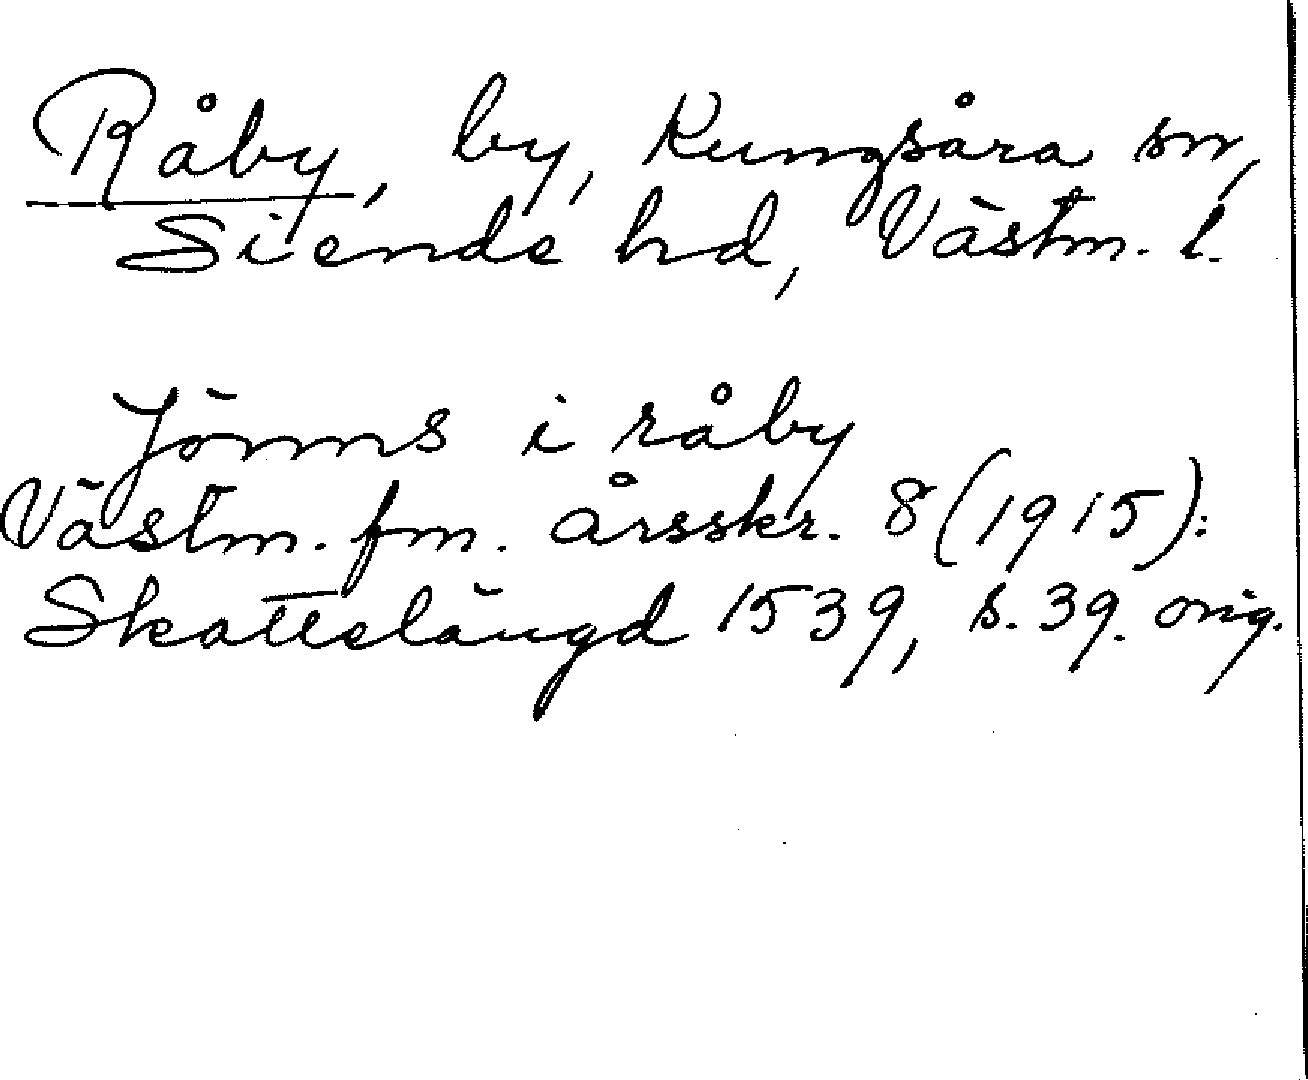 Råby, by, Kungsåra sn,
Siende hd, Västm. l.
Jönns i råby
Västm. fm. årsskr. 8 (1915):
Skattelängd 1539, s. 39. orig.